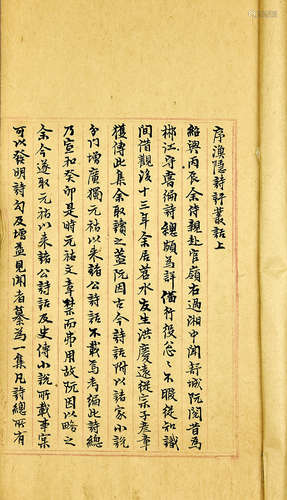 序漁隱詩評叢話上
紹興丙辰余侍親赴官嶺右過湘中聞舒城阮閱昔為
郴江守嘗編詩總頗為詳備行役怱〻不暇從知識
間借觀後十三年余居苕水友生洪慶遠從宗子彥章
獲傳此集余取讀之盖阮因古今詩話附以諸家小說
分門增廣獨元祐以来諸公詩話不載焉考編此詩總
乃宣和癸卯是時元祐文章禁而弗用故阮因以略之
余今遂取元祐以来諸公詩話及史傳小說所載事寔
可以發明詩勾及增益見聞者纂為一集凡詩總所有